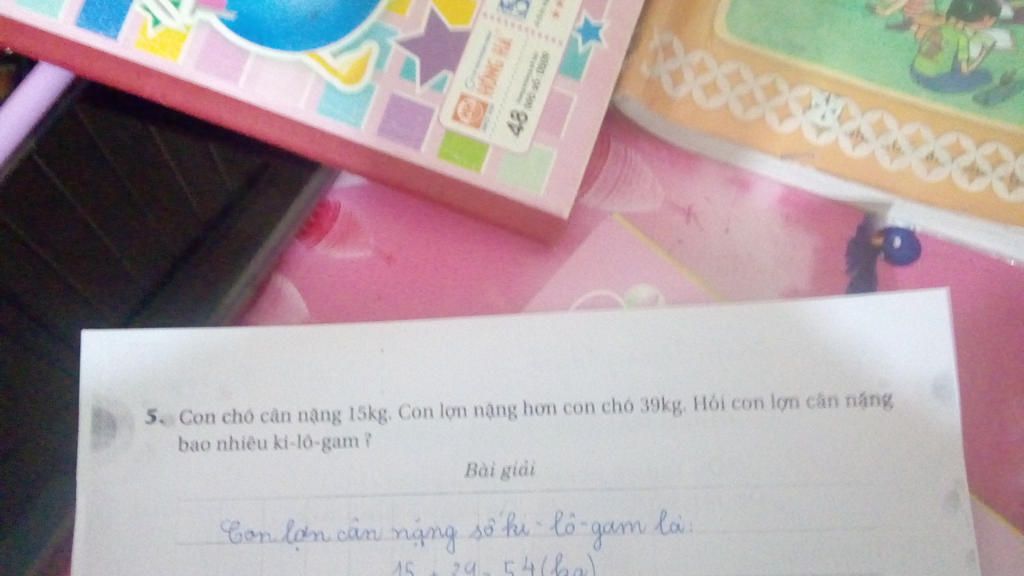 HỒNG HÀ
48
5. Con chó cân nặng 15kg. Con lợn nặng hơn con chó 39kg. Hỏi con lợn cân nặng
bao nhiêu ki-lô-gam ?
Bài giải
Con lợn cân nặng số ki-lô-gam là:
15 + 39 = 54 (kg)